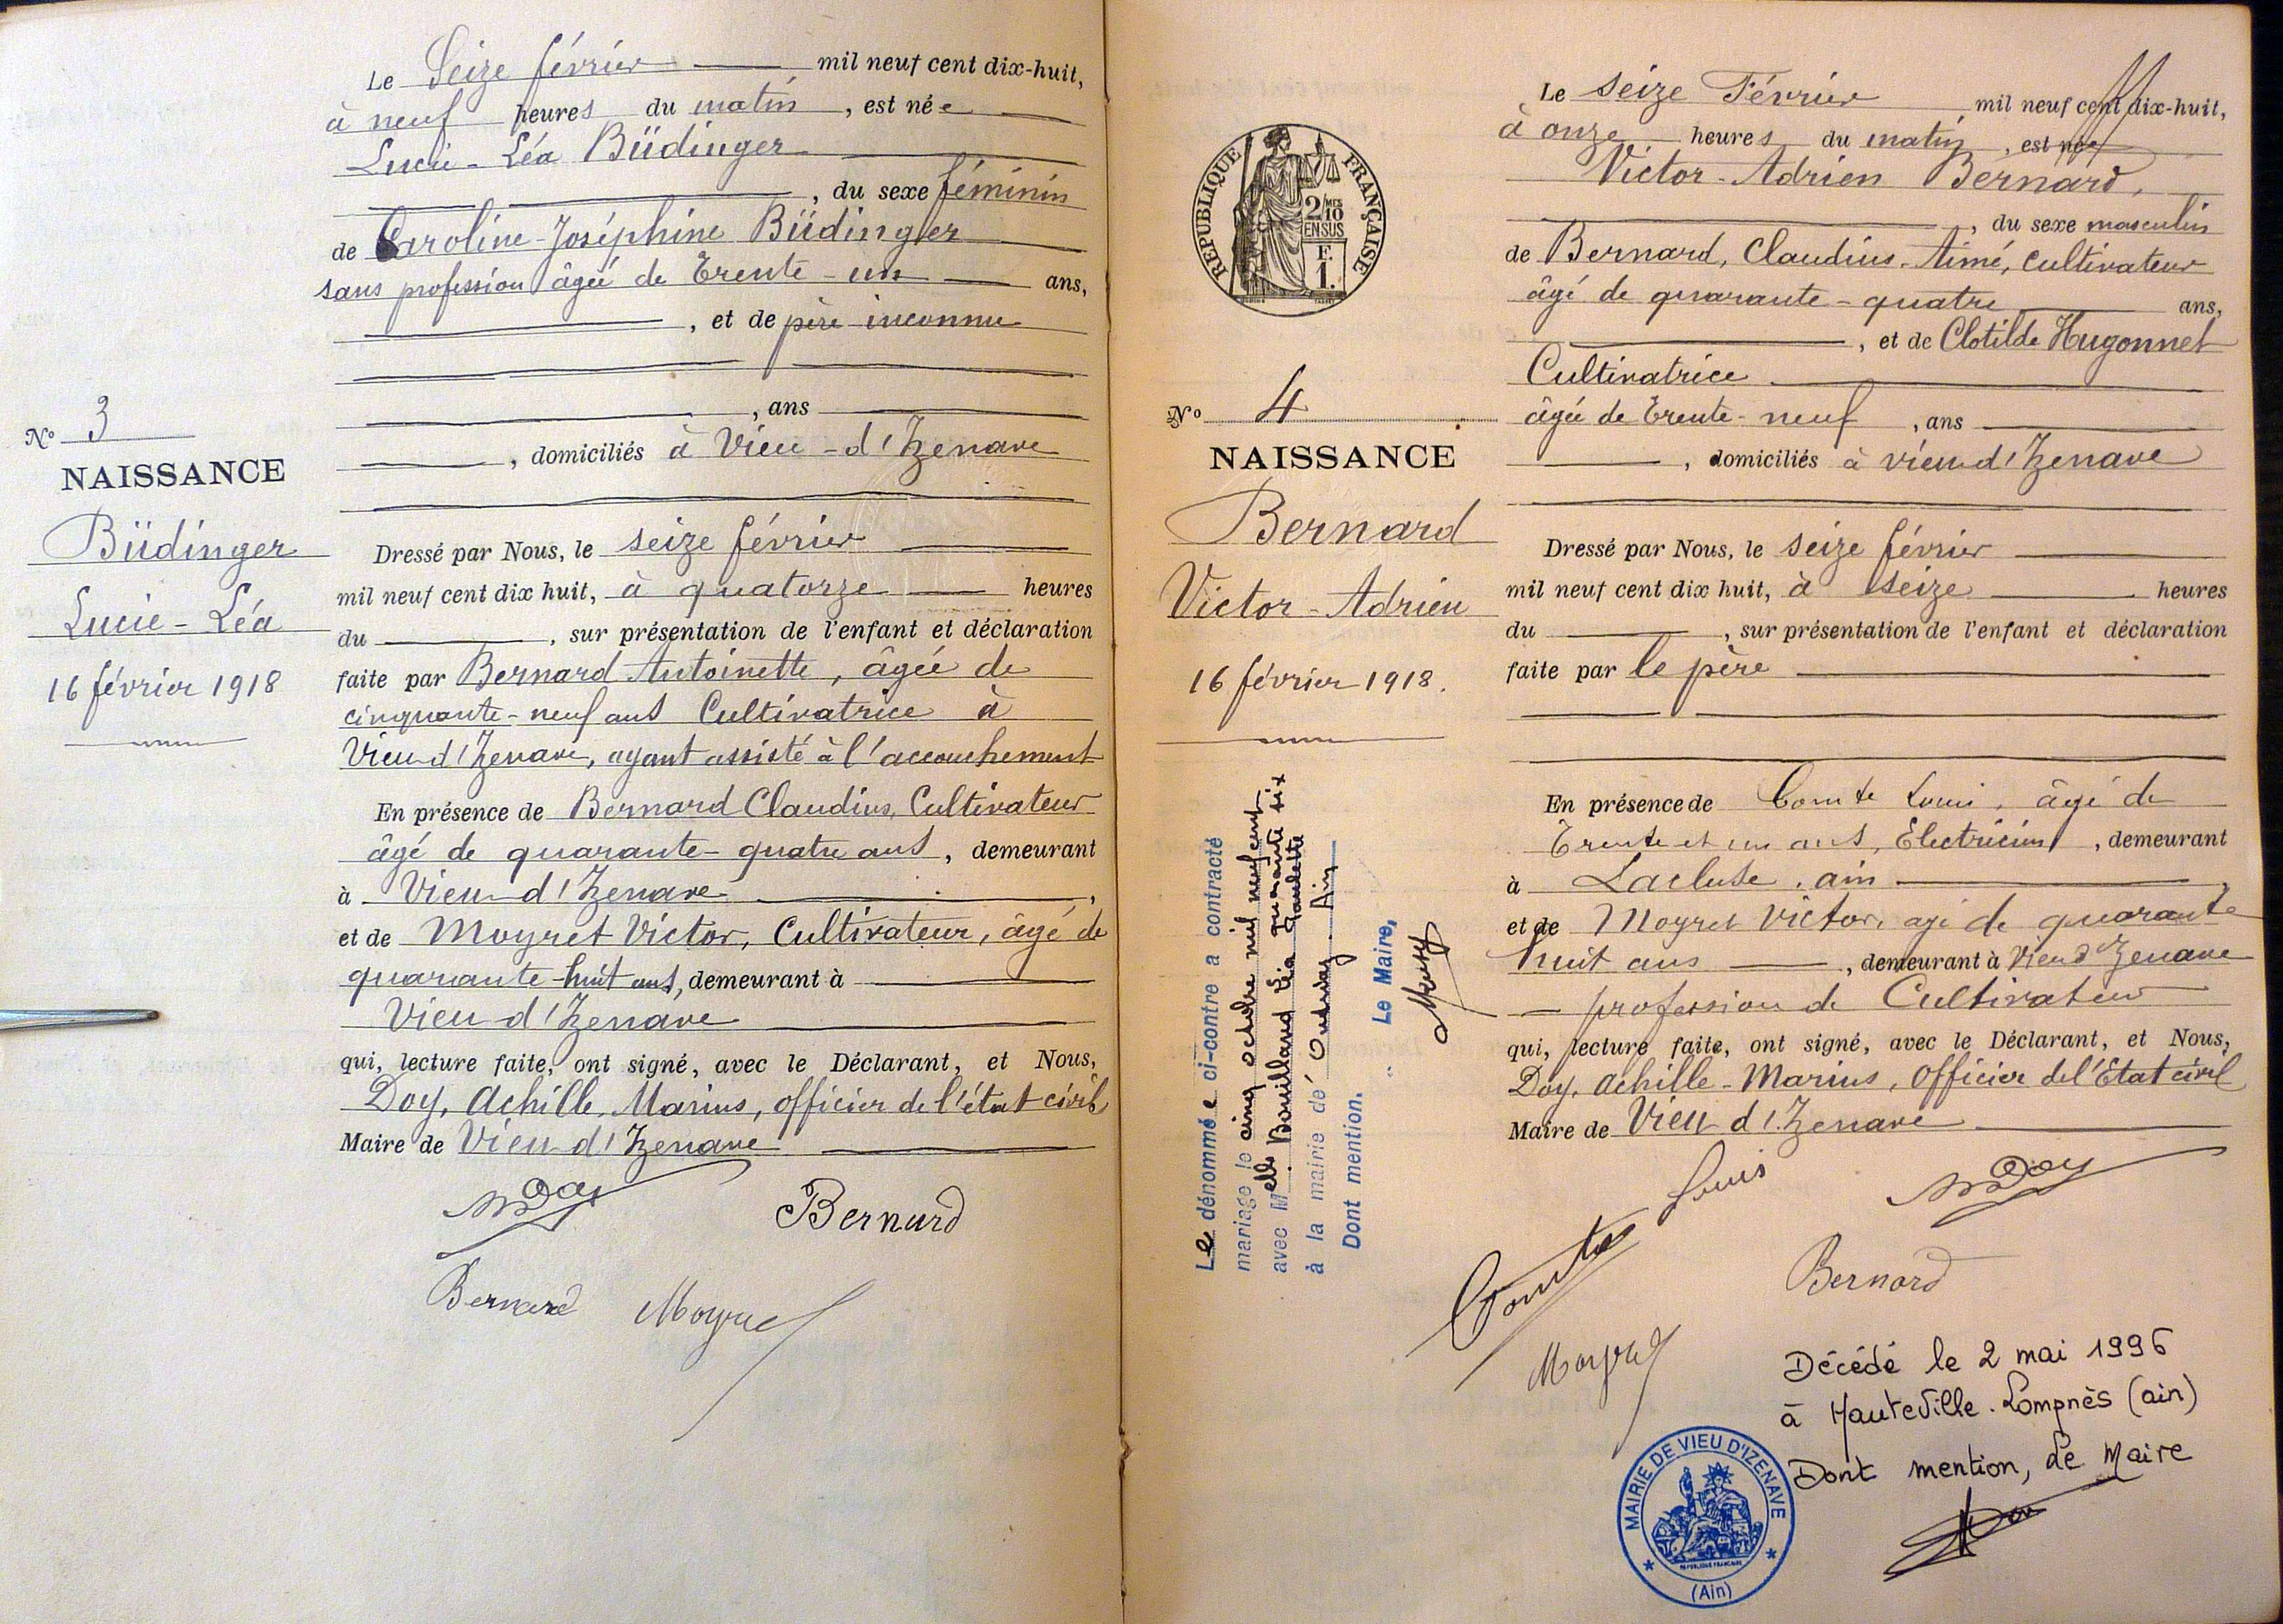 Le Seize février mil neuf cent dix-huit,
à neuf heures du matin, est née
Lucie-Léa Büdinger
, du sexe féminin
de Caroline-Joséphine Büdinger
sans profession âgée de Trente-un ans,
, et de père inconnu
, ans
, domiciliés à Vieu-d'Izenave
N° 3
NAISSANCE
Büdinger
Lucie-Léa
16 février 1918
Dressé par Nous, le seize février
mil neuf cent dix huit, à quatorze heures
du , sur présentation de l'enfant et déclaration
faite par Bernard Antoinette, âgée de
cinquante-neuf ans Cultivatrice à
Vieu d'Izenave, ayant assisté à l'accouchement
En présence de Bernard Claudius, Cultivateur
âgé de quarante-quatre ans, demeurant
à Vieu d'Izenave,
et de Moyret Victor, Cultivateur, âgé de
quarante-huit ans, demeurant à
Vieu d'Izenave
qui, lecture faite, ont signé, avec le Déclarant, et Nous,
Doy, Achille, Marius, officier de l'état civil
Maire de Vieu d'Izenave
Doy
Bernard
Bernard
Moyret
Le seize Février mil neuf cent dix-huit,
à onze heures du matin, est né
Victor-Adrien Bernard,
, du sexe masculin
de Bernard, Claudius-Aimé, cultivateur
âgé de quarante-quatre ans,
, et de Clotilde Hugonnet
Cultivatrice
âgée de Trente-neuf, ans
, domiciliés à vieu d'Izenave
RÉPUBLIQUE FRANÇAISE
2/10 MES
EN SUS
F.
1.
N° 4
NAISSANCE
Bernard
Victor-Adrien
16 février 1918.
Dressé par Nous, le seize février
mil neuf cent dix huit, à seize heures
du , sur présentation de l'enfant et déclaration
faite par le père
En présence de Comte Louis, âgé de
Trente et un ans, Electricien, demeurant
à Lacluse. ain,
et de Moyret Victor, agé de quarante
huit ans, demeurant à Vieu d'Izenave
profession de Cultivateur
qui, lecture faite, ont signé, avec le Déclarant, et Nous,
Doy, Achille-Marius, Officier de l'Etat civil
Maire de Vieu d'Izenave
Le dénommé ci-contre a contracté
mariage le cinq octobre mil neuf cent quarante six
avec Melle Bouilland Léa Paulette
à la mairie de Ain
Dont mention.
Le Maire,
Comte Louis
Doy
Bernard
Moyret
Décédé le 2 mai 1996
à Hauteville-Lompnès (ain)
Dont mention, Le Maire
MAIRIE DE VIEU D'IZENAVE
RÉPUBLIQUE FRANÇAISE
(Ain)